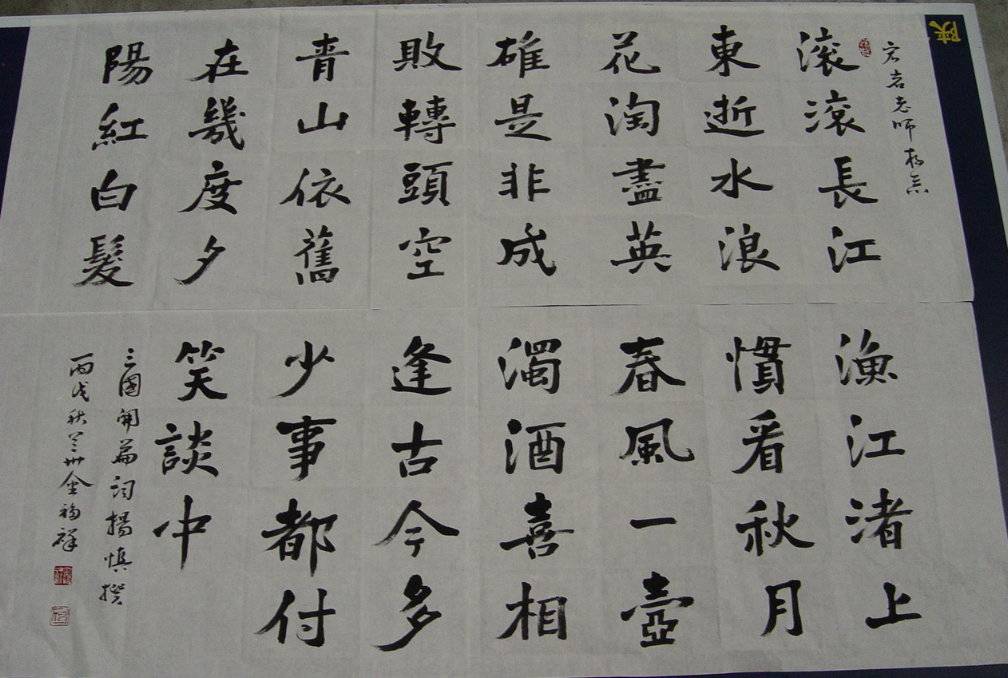 陕
老师
滾滾長江
東逝水浪
花淘盡英
雄是非成
敗轉頭空
青山依舊
在幾度夕
陽紅白髮
渔江渚上
慣看秋月
春風一壺
濁酒喜相
逢古今多
少事都付
笑談中
三國開篇词楊慎撰
丙戌秋兰州金福祥